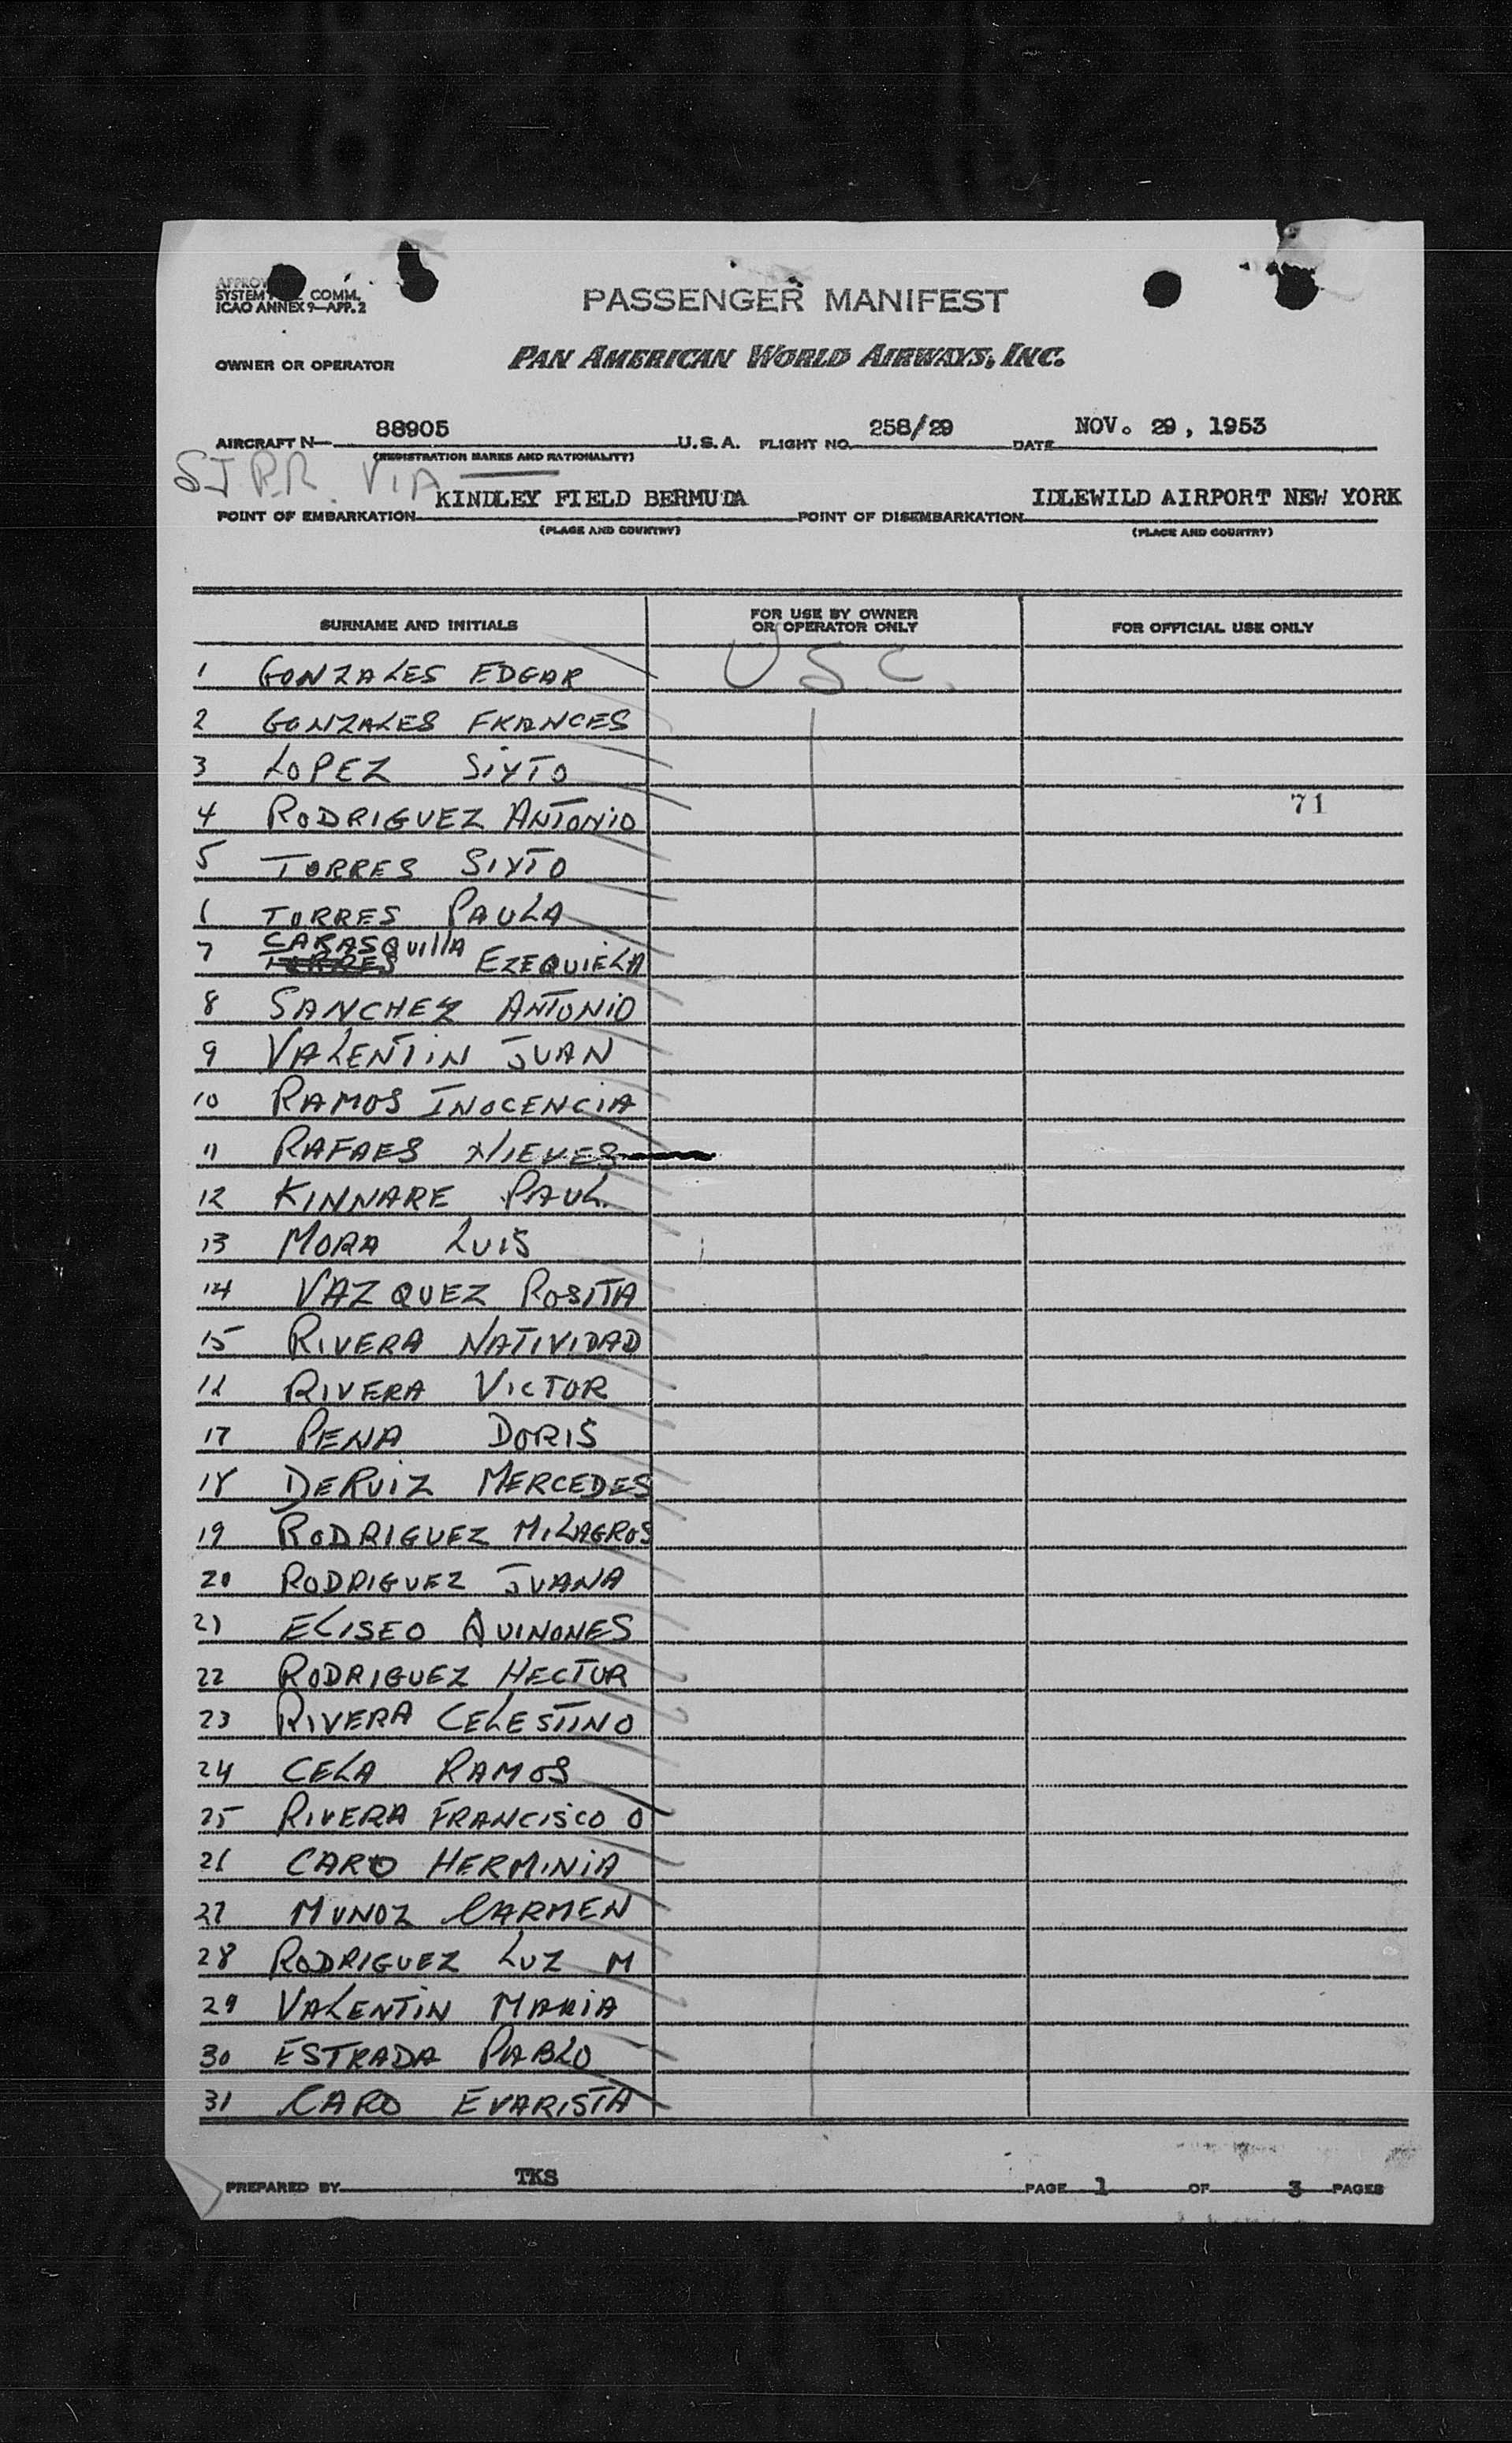 SYSTEM COMM.
ICAO ANNEX 9—APP. 2
PASSENGER MANIFEST
OWNER OR OPERATOR
PAN AMERICAN WORLD AIRWAYS, INC.
AIRCRAFT N— 88905 U.S.A. FLIGHT NO. 258/29 DATE NOV. 29, 1953
(REGISTRATION MARKS AND NATIONALITY)
SJ P.R. VIA
POINT OF EMBARKATION KINDLEY FIELD BERMUDA POINT OF DISEMBARKATION IDLEWILD AIRPORT NEW YORK
(PLACE AND COUNTRY) (PLACE AND COUNTRY)
SURNAME AND INITIALS FOR USE BY OWNER OR OPERATOR ONLY FOR OFFICIAL USE ONLY
1 GONZALES EDGAR USC.
2 GONZALES FRANCES
3 LOPEZ SIXTO
71
4 RODRIGUEZ ANTONIO
5 TORRES SIXTO
6 TORRES PAULA
7 CARASQUILLA TORRES EZEQUIELA
8 SANCHEZ ANTONIO
9 VALENTIN JUAN
10 RAMOS INOCENCIA
11 RAFAES NIEVES
12 KINNARE PAUL
13 MORA LUIS
14 VAZQUEZ ROSITA
15 RIVERA NATIVIDAD
16 RIVERA VICTOR
17 PENA DORIS
18 DERUIZ MERCEDES
19 RODRIGUEZ MILAGROS
20 RODRIGUEZ JUANA
21 ELISEO QUINONES
22 RODRIGUEZ HECTOR
23 RIVERA CELESTINO
24 CELA RAMOS
25 RIVERA FRANCISCO O
26 CARO HERMINIA
27 MUNOZ CARMEN
28 RODRIGUEZ LUZ M
29 VALENTIN MARIA
30 ESTRADA PABLO
31 CARO EVARISTA
PREPARED BY TKS PAGE 1 OF 3 PAGES